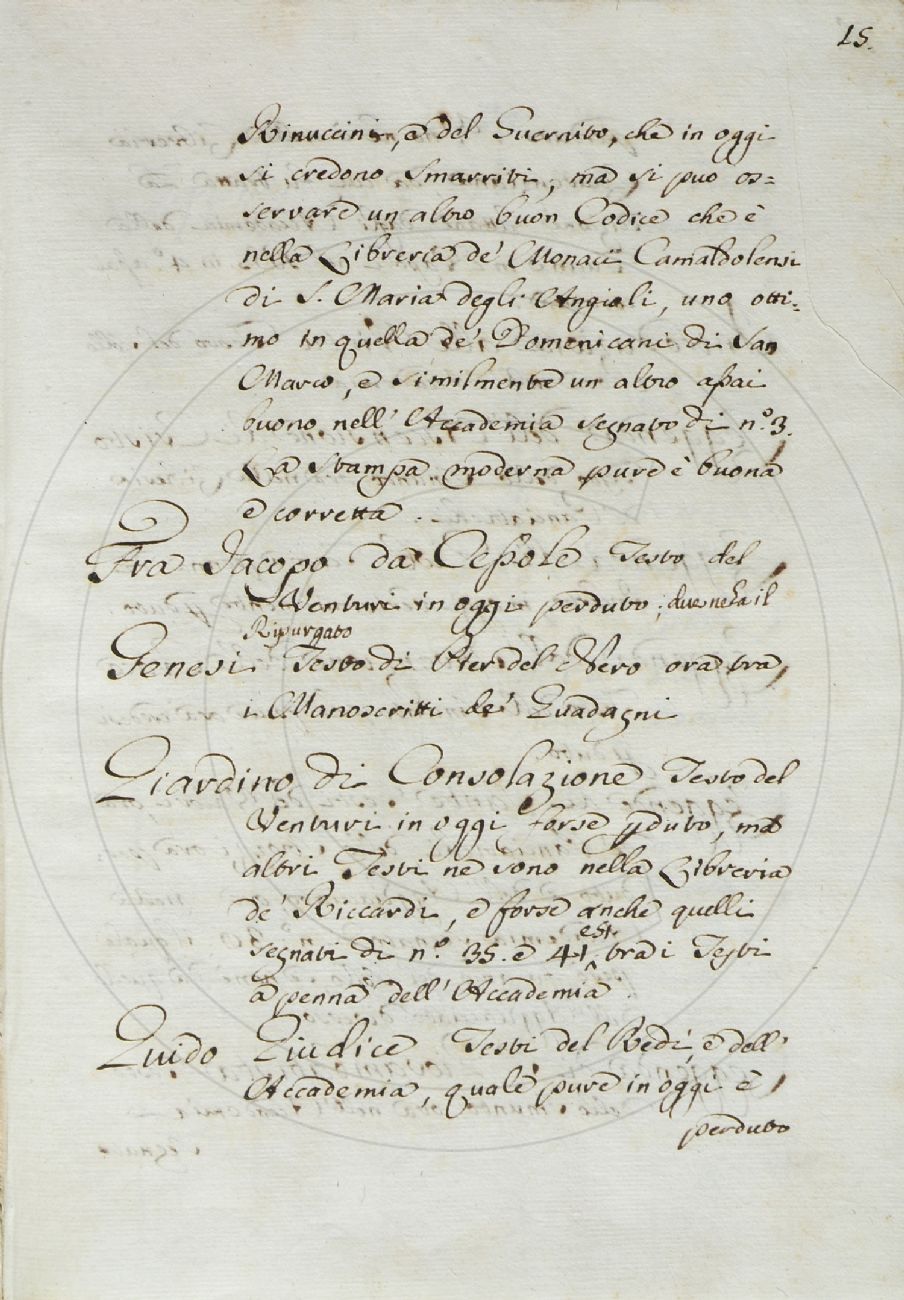 15.
Rinuccini, e del Guernito, che in oggi
si credono smarriti; ma si puo os=
servare un altro buon Codice che è
nella Libreria de' Monaci Camaldolensi
di S. Maria degli Angioli, uno otti=
mo in quella de' Domenicani di San
Marco, e similmente un altro assai
buono nell' Accademia segnato di n.º 3.
La stampa moderna pure è buona
e corretta.
Fra Jacopo da Cessole Testo del
Venturi in oggi perduto; due ne ha il
Ripurgato
Genesi Testo di Pier del Nero ora tra
i Manoscritti de' Guadagni
Giardino di Consolazione Testo del
Venturi in oggi forse ꝑduto, ma
altri Testi ne sono nella Libreria
de' Riccardi, e forse anche quelli
segnati di n.º 35. e 41 tra i Testi
a penna dell' Accademia.
Guido Giudice Testi del Redi, e dell'
Accademia, quale pure in oggi è
perduto